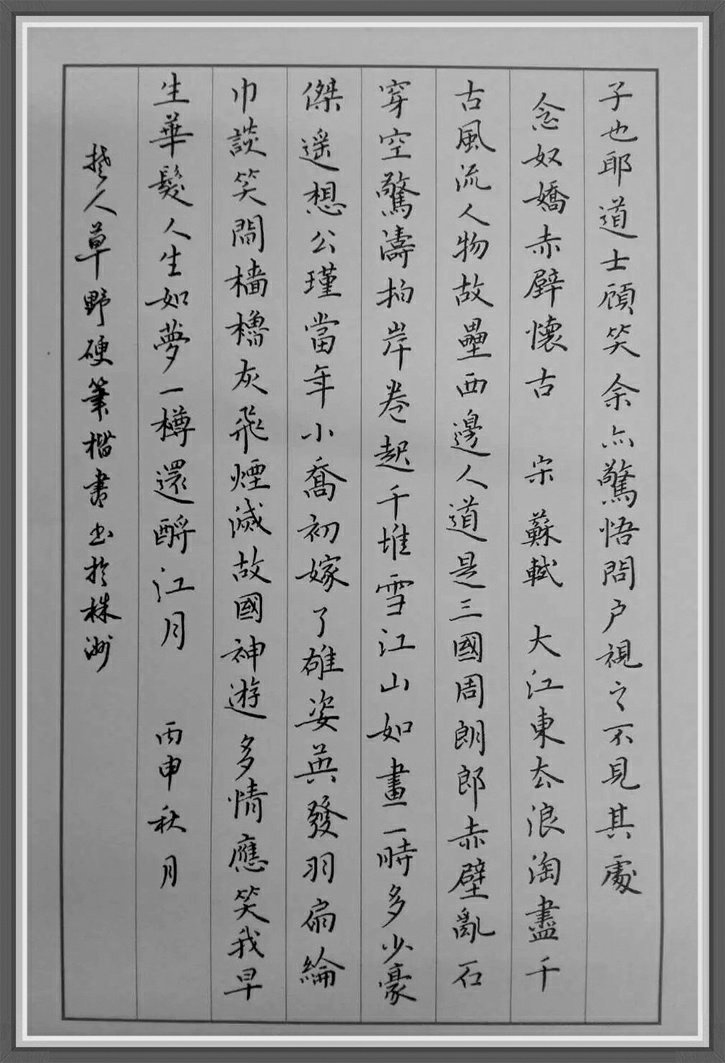 子也耶道士顧笑余亦驚悟問户視之不見其處
念奴嬌赤壁懷古 宋蘇軾 大江東去浪淘盡千
古風流人物故壘西邊人道是三國周朗郎赤壁亂石
穿空驚濤拍岸卷起千堆雪江山如畫一時多少豪
傑遥想公瑾當年小喬初嫁了雄姿英發羽扇綸
巾談笑間檣櫓灰飛煙滅故國神遊多情應笑我早
生華髮人生如夢一樽還酹江月 丙申秋月
楚人草野硬筆楷書书於株洲